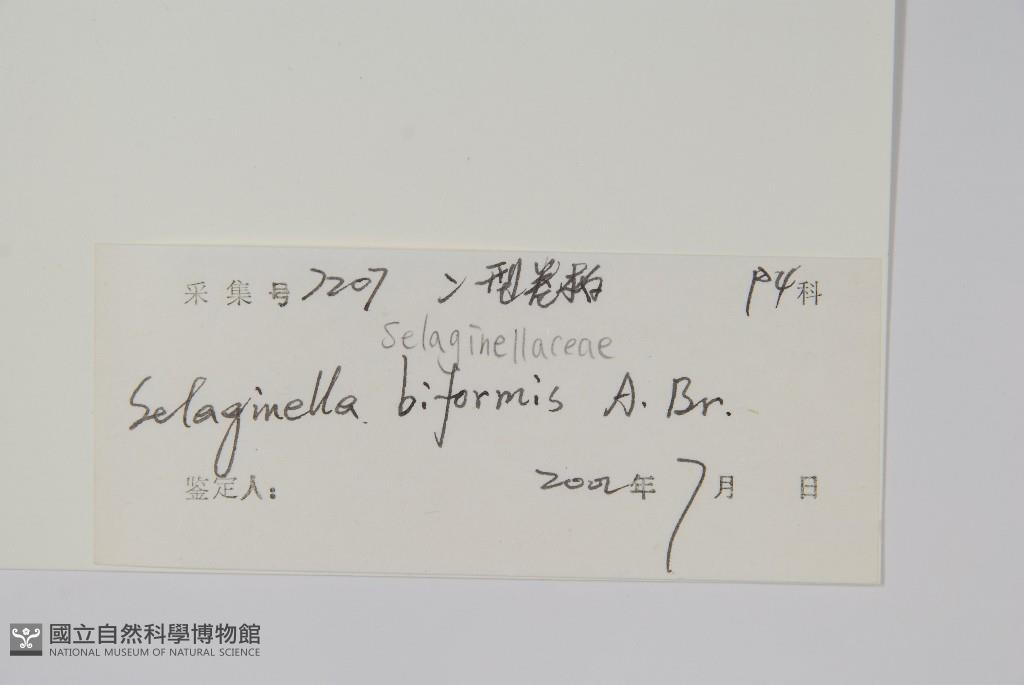 采集号 7207 二型卷柏 P4科
Selaginellaceae
Selaginella biformis A. Br.
鉴定人: 2002年7月 日
國立自然科學博物館
NATIONAL MUSEUM OF NATURAL SCIENCE